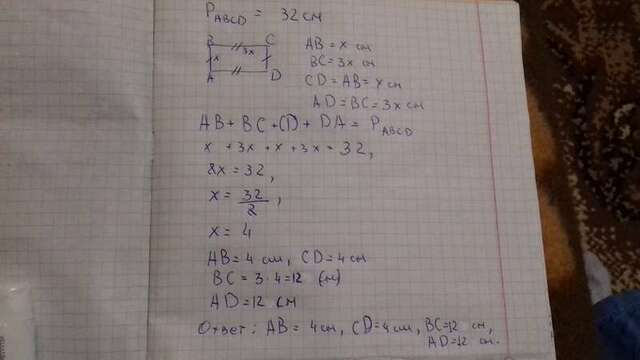 P_ABCD = 32 см
B C
3x
x
A D
AB = x см
BC = 3x см
CD = AB = x см
AD = BC = 3x см
AB + BC + CD + DA = P_ABCD
x + 3x + x + 3x = 32,
8x = 32,
x = 32/8,
x = 4
AB = 4 см, CD = 4 см
BC = 3·4 = 12 (см)
AD = 12 см
Ответ: AB = 4 см, CD = 4 см, BC = 12 см,
AD = 12 см.